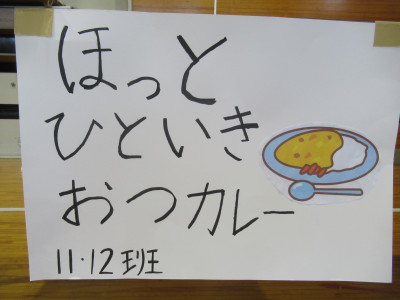 ほっと
ひといき
おつカレー
11・12班